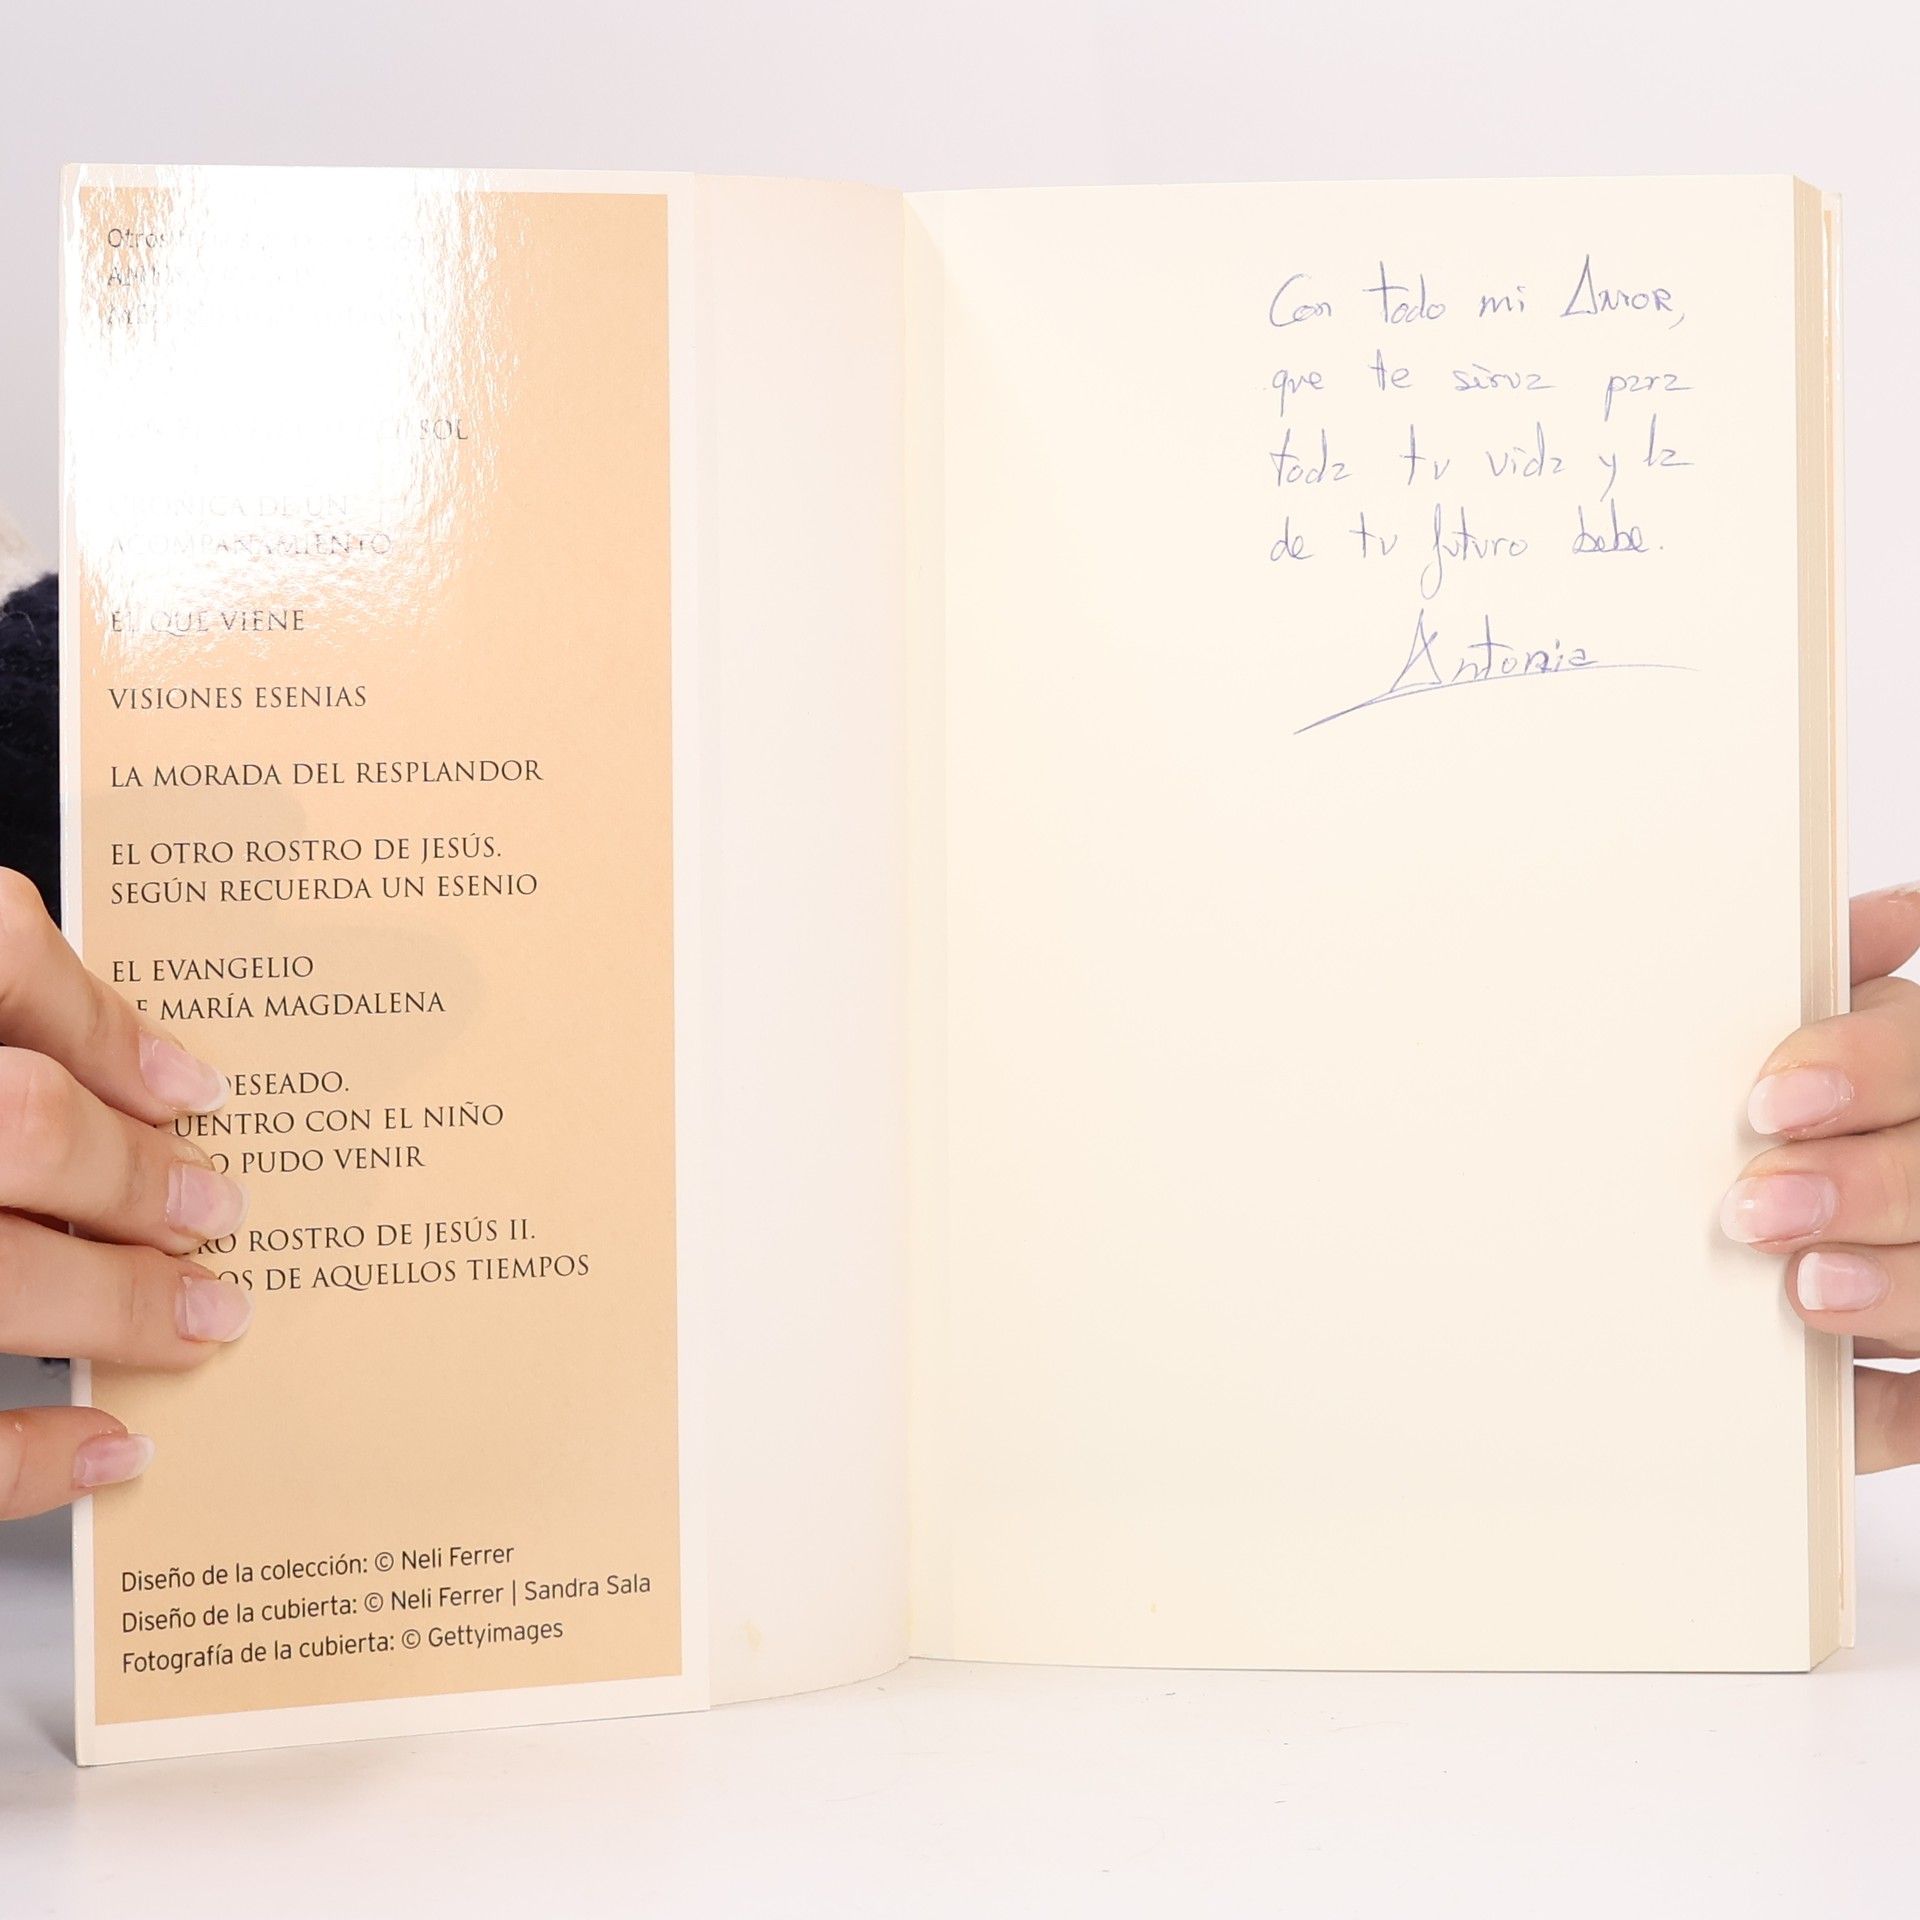 EL QUE VIENE
VISIONES ESENIAS
LA MORADA DEL RESPLANDOR
EL OTRO ROSTRO DE JESÚS.
SEGÚN RECUERDA UN ESENIO
EL EVANGELIO
MARÍA MAGDALENA
DESEADO.
CON EL NIÑO
PUDO VENIR
ROSTRO DE JESÚS II.
DE AQUELLOS TIEMPOS
Diseño de la colección: © Neli Ferrer
Diseño de la cubierta: © Neli Ferrer | Sandra Sala
Fotografía de la cubierta: © Gettyimages
CRÓNICA DE UN
ACOMPAÑAMIENTO
SOL
Con todo mi Amor,
que te sirva para
toda tu vida y la
de tu futuro bebe.
Antonia